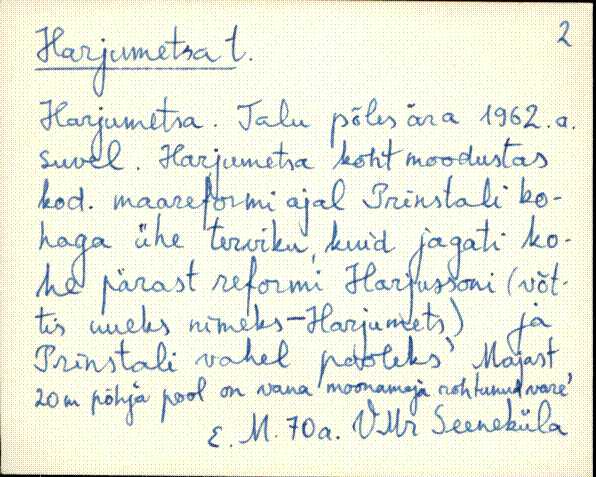 Harjumetsa t.
2
Harjumetsa. Talu põles ära 1962.a.
suvel. Harjumetsa koht moodustas
kod. maareformi ajal Prinstali ko-
haga ühe terviku, kuid jagati ko-
he pärast reformi Harjussoni (võt-
tis uueks nimeks - Harjumets) ja
Prinstali vahel pooleks. Majast
20m põhja pool on vana moonamaja rohtunud vare.
E. M. 70a. VMr Seeneküla